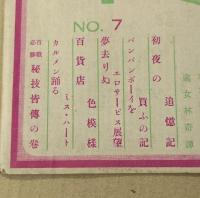 NO. 7
処女林奇譚
初夜の追憶記
パンパンボーイを買ふの記
エロサービス展望
夢去り幻
百貨店色模様
カルメン踊る
ミス・ハート
百戦必勝
秘技皆傳の巻